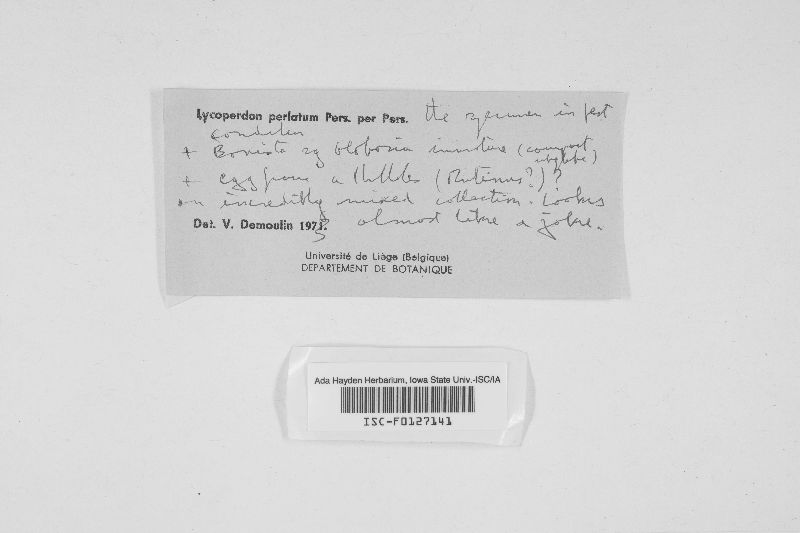 Lycoperdon perlatum Pers. per Pers. the specimen in fest
condition
+ Bovista immature (compact
+ egg from a (Mutinus?)?
an incredibly mixed collection. Looks
Det. V. Demoulin 1973. almost like a joke.
Université de Liège (Belgique)
DEPARTEMENT DE BOTANIQUE
Ada Hayden Herbarium, Iowa State Univ.-ISC/IA
ISC-F0127141